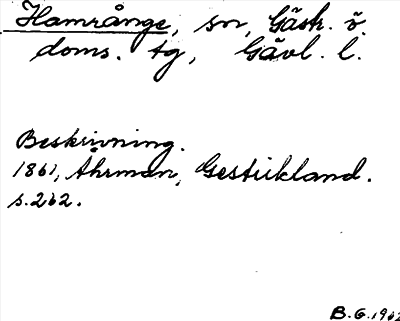 Hamrånge, sn, Gästr. ö.
doms. tg, Gävl. l.
Beskrivning.
1861, Åhrman, Gestrikland.
s. 262.
B.G. 1962